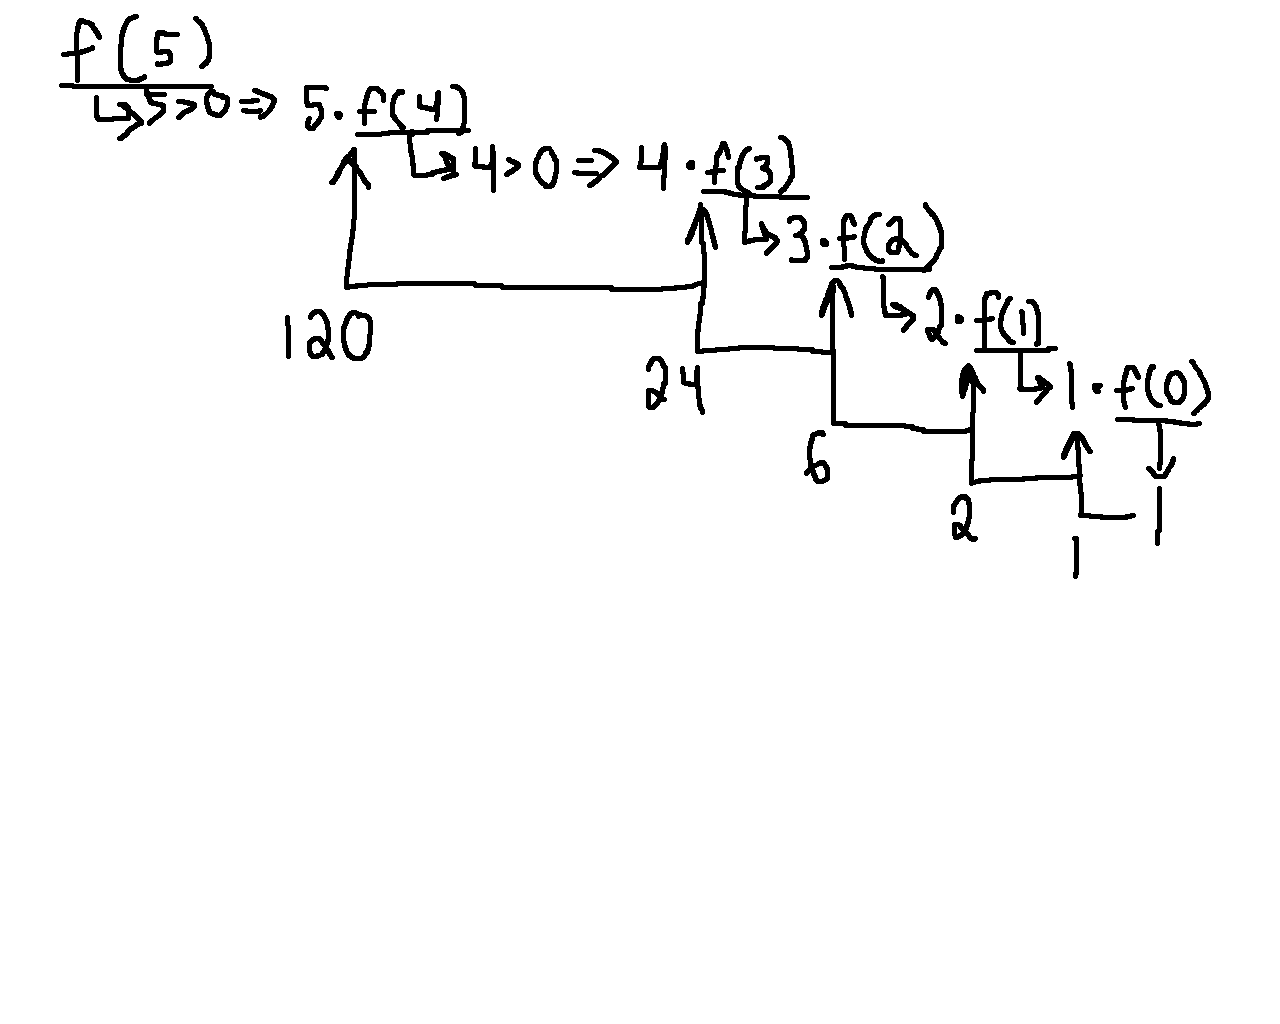 f(5)
↳ 5 > 0 ⇒ 5 · f(4)
↳ 4 > 0 ⇒ 4 · f(3)
↳ 3 · f(2)
↳ 2 · f(1)
↳ 1 · f(0)
120
24
6
2
1
1